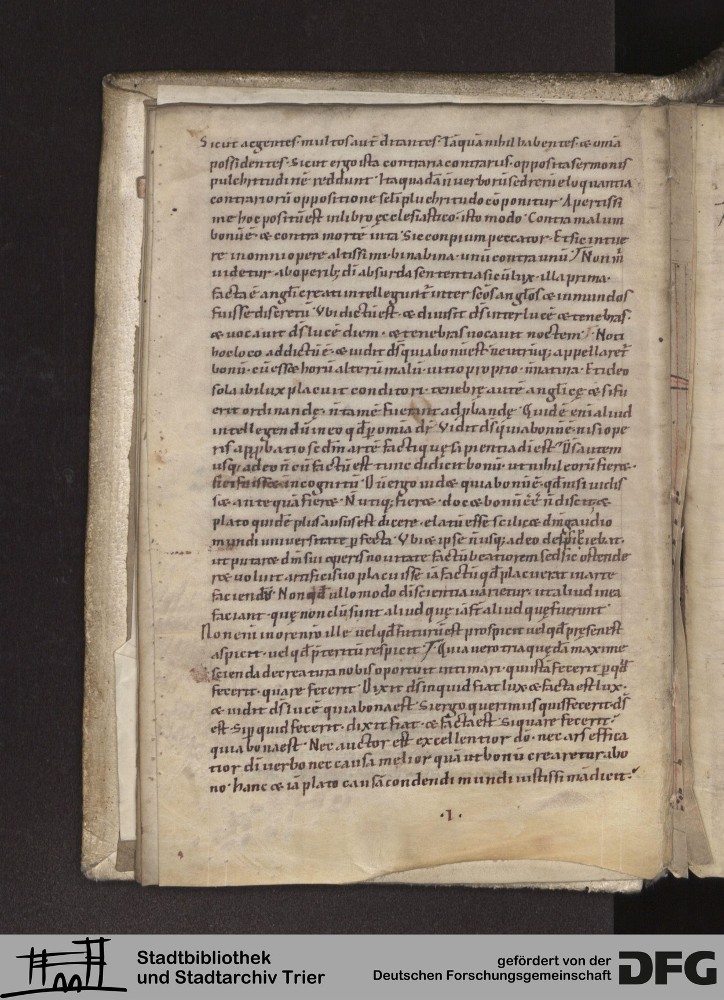 Sicut aegentes· multos aut̄ ditantes· Tāquā nihil habentes· & om̄ia
possidentes· Sicut ergo ista contraria contrariis· opposita sermonis
pulchritudinē reddunt· Ita quadā n̄ verborū sed rerū eloquentia
contrariorū oppositione scl̄i pulchritudo cōponitur· Apertissi
me hoc positūest inlibro ęcclesiastico· isto modo· Contra malum
bonūē· & contra mortē uita· Sic con pium peccator· Et sic intue
re in omni opere altissimi· bina bina· unū contra unū· Non m̄
uidetur· ab operib; dī absurda sententia si cū lux· illa prima·
facta ē angłi creati intellegunt̄· inter sc̄os angłos & inmundos
fuisse discretū· Vbi dictūest· & diuisit ds̄ inter lucē & tenebras·
& uocauit ds̄ lucē diem· & tenebras uocauit noctem·
hoc loco addictū ē· & uidit ds̄ quia bonūest· ne utrūq; appellaret̄
bonū· cū esset horū alterū malū· uitio proprio· n̄ natura· Et ideo
sola ibi lux placuit conditori· tenebrę autē angłicę & si fu
erit ordinandę· n̄ tamē fuerunt adꝓbandę· Quid ē enī aliud
intellegendū in eo qđ ꝑ omīa dr̄· Vidit ds̄ quia bonūē· nisi ope
ris approbatio sc̄dm̄ artē facti quę sapientia dī est· Ds̄ autem
usq; adeo n̄ cū factūest tunc didicit bonū· ut nihil eorū fier&·
si ei fuisset incognitū· Dū ergo uidet quia bonūē· qđ nisi uidis
s& antequā fier&· N̄ utiq; fier&· doc& bonū ēē n̄ discit·
plato quidē plus ausus est dicere· elatū esse scilicet dm̄ gaudio
mundi uniuersitate ꝑfecta· Vbi & ipse n̄ usq; adeo desipiebat·
ut putaret dm̄ sui operis nouitate factū beatiorem sed sic ostende
re uoluit artifici suo placuisse iā factū qđ placuerat in arte
faciendū· Non qđ ullo modo dī scientia uarietur· ut aliud in ea
faciant· quę nondū sunt aliud quę iā s̄t aliud quę fuerunt·
Non enī in ore nr̄o ille· uel qđ futurūest prospicit uel qđ pręsens est
aspicit· uel qđ p̄teritū respicit· Quia uero tria quędā maxime
scienda de creatura nobis oportuit intimari· quis eā fecerit ꝑ qđ
fecerit· quare fecerit· Dixit ds̄ inquid fiat lux & facta est lux·
& uidit ds̄ lucē quia bona est· Si ergo querimus quis fecerit· ds̄
est· Si ꝑ quid fecerit· dixit fiat· & facta est· Si quare fecerit·
quia bona est· Nec auctor est excellentior dō· nec ars effica
tior dī uerbo nec causa melior quā ut bonū crearetur abo
no· hanc & iā plato causā condendi mundi iustissimā dicit·
·I·
Stadtbibliothek
und Stadtarchiv Trier
gefördert von der
Deutschen Forschungsgemeinschaft
DFG